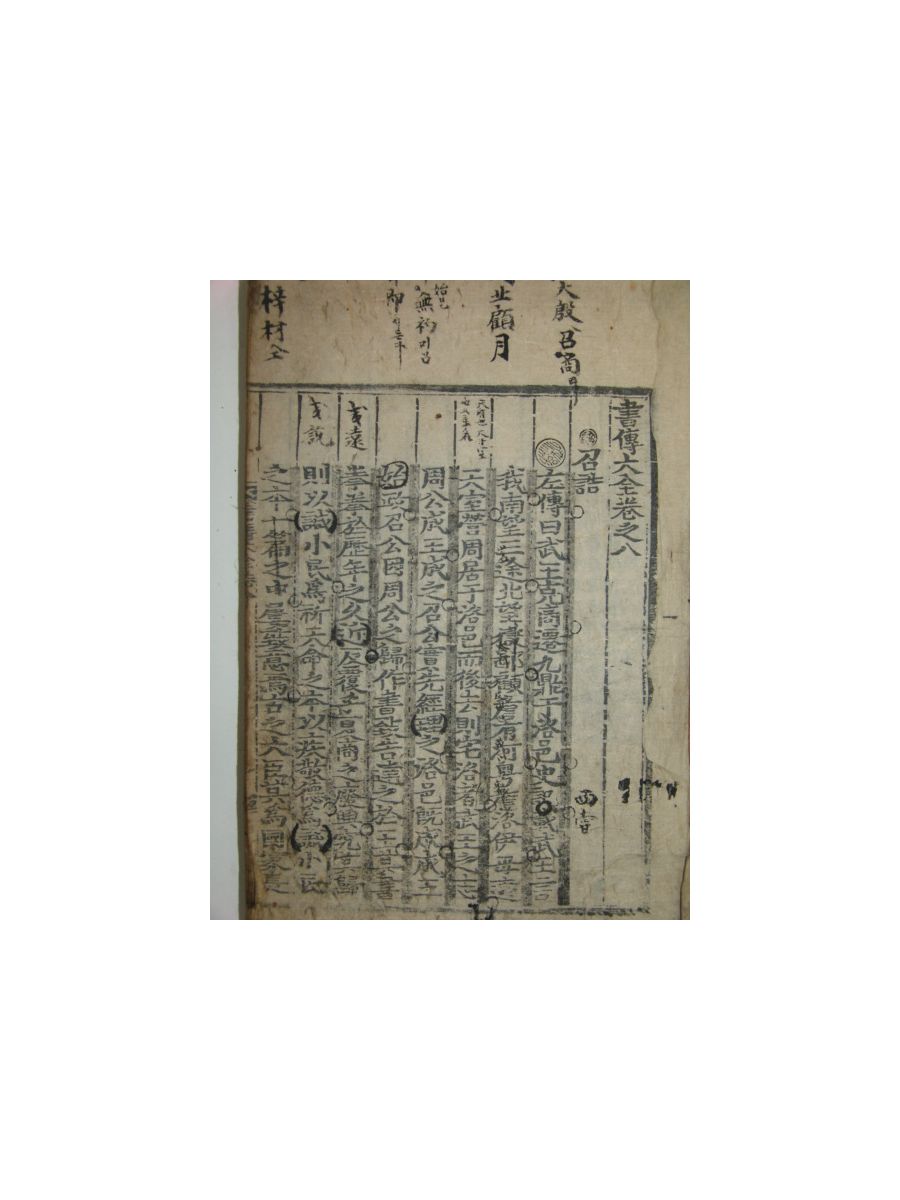 書傳大全卷之八
召誥
左傳曰武王克商遷九鼎于洛邑史記載武王言
我南望三途北望嶽鄙顧詹有河粤詹洛伊毋遠
天室營周居于洛邑而後去則宅洛者武王之志
周公成王成之召公實先經理之洛邑旣成成王
始政召公因周公之歸作書致告達之於王其書
拳拳於歷年之久近反復乎夏商之廢興究其歸
則以諴小民爲祈天命之本以疾敬德爲諴小民
之本一篇之中屢致意焉古之大臣其爲國家長
大殷 召 商
顧月
無
即
梓材
遠
説